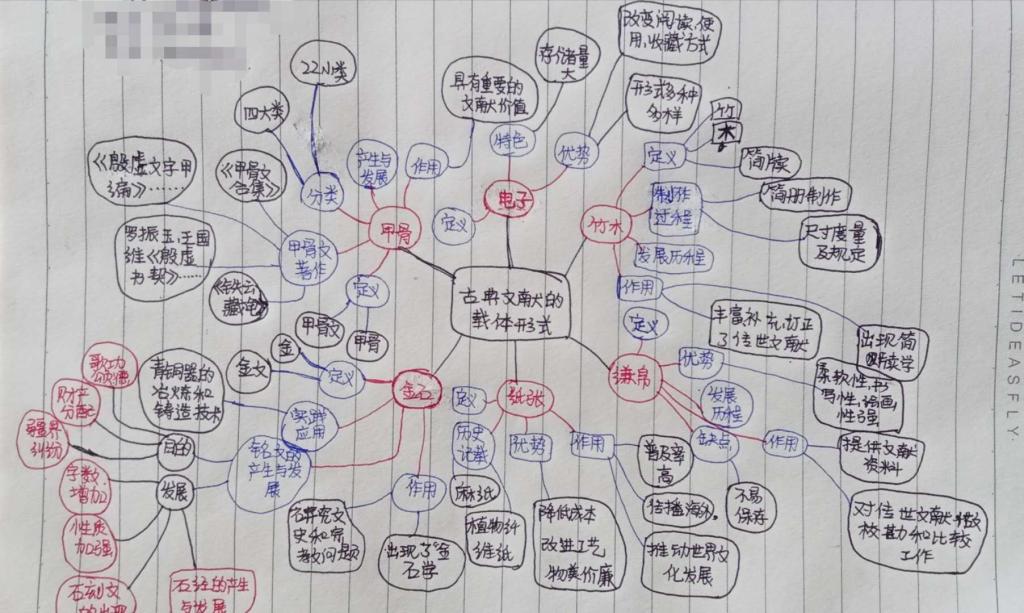 古典文献的
载体形式
甲骨
产生与
发展
作用
具有重要的
文献价值
分类
四大类
22小类
甲骨文
著作
《甲骨文
合集》
《殷虚文字甲
编》……
罗振玉、王国
维《殷虚
书契》……
《铁云
藏龟》
定义
甲骨文
甲骨
电子
定义
特色
存储量
大
优势
改变阅读、使
用、收藏方式
形式多种
多样
竹木
定义
竹
木
简牍
制作
过程
简册制作
尺寸度量
及规定
发展历程
作用
丰富、补充、订正
了传世文献
出现简
牍学
缣帛
定义
优势
柔软性、书
写性、绘画
性强
发展
历程
缺点
不易
保存
作用
提供文献
资料
对传世文献做
校勘和比较
工作
纸张
定义
历史
记载
麻纸
植物纤
维纸
优势
降低成本
改进工艺
物美价廉
作用
普及率
高
传播海外
推动世界文
化发展
金石
定义
金
金文
实践
应用
青铜器的
冶炼和
铸造技术
铭文的
产生与发
展
目的
歌功
颂德
财产
分配
疆界
纠纷
发展
字数
增加
性质
加强
石刻文
的出现
石经的产生
与发展
作用
史和宗
教问题
出现了“金
石学”
LETIDEASFLY.